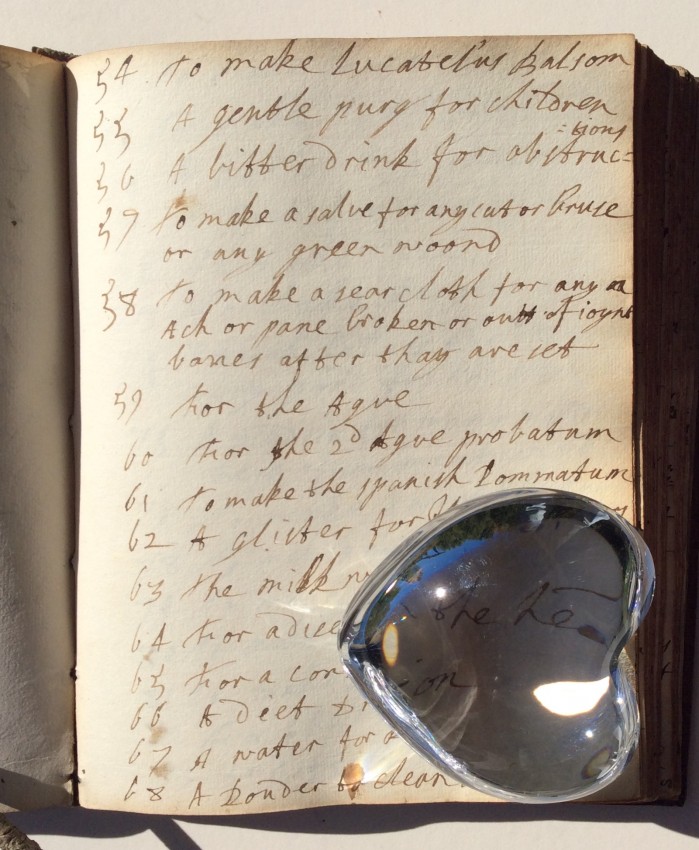 54 To make Lucatel's Balsom
55 A gentle purg for children
56 A bitter drink for obstruc=
=tions
57 To make a salve for any cut or bruse
or any green woond
58 To make a sear cloth for any
Ach or pane broken or out of ioynt
bones after thay are set
59 For the Ague
60 For the 2d Ague probatum
61 To make the spanish Pommatum
62 A glister for
63 The milk
64 For a the
65 For a
66 A diet
67 A water for
68 A Pouder to clean